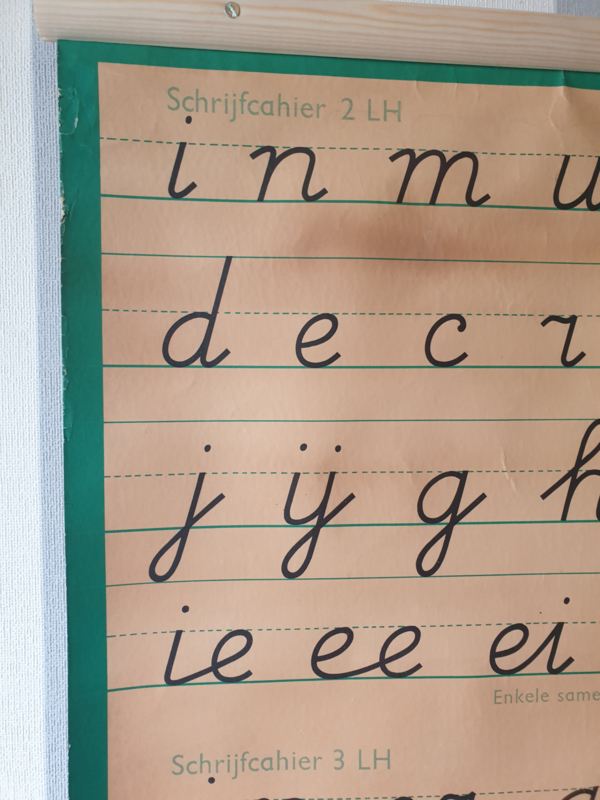 Schrijfcahier 2 LH
i n m u
d e c r
j ij g h
ie ee ei
Enkele same
Schrijfcahier 3 LH